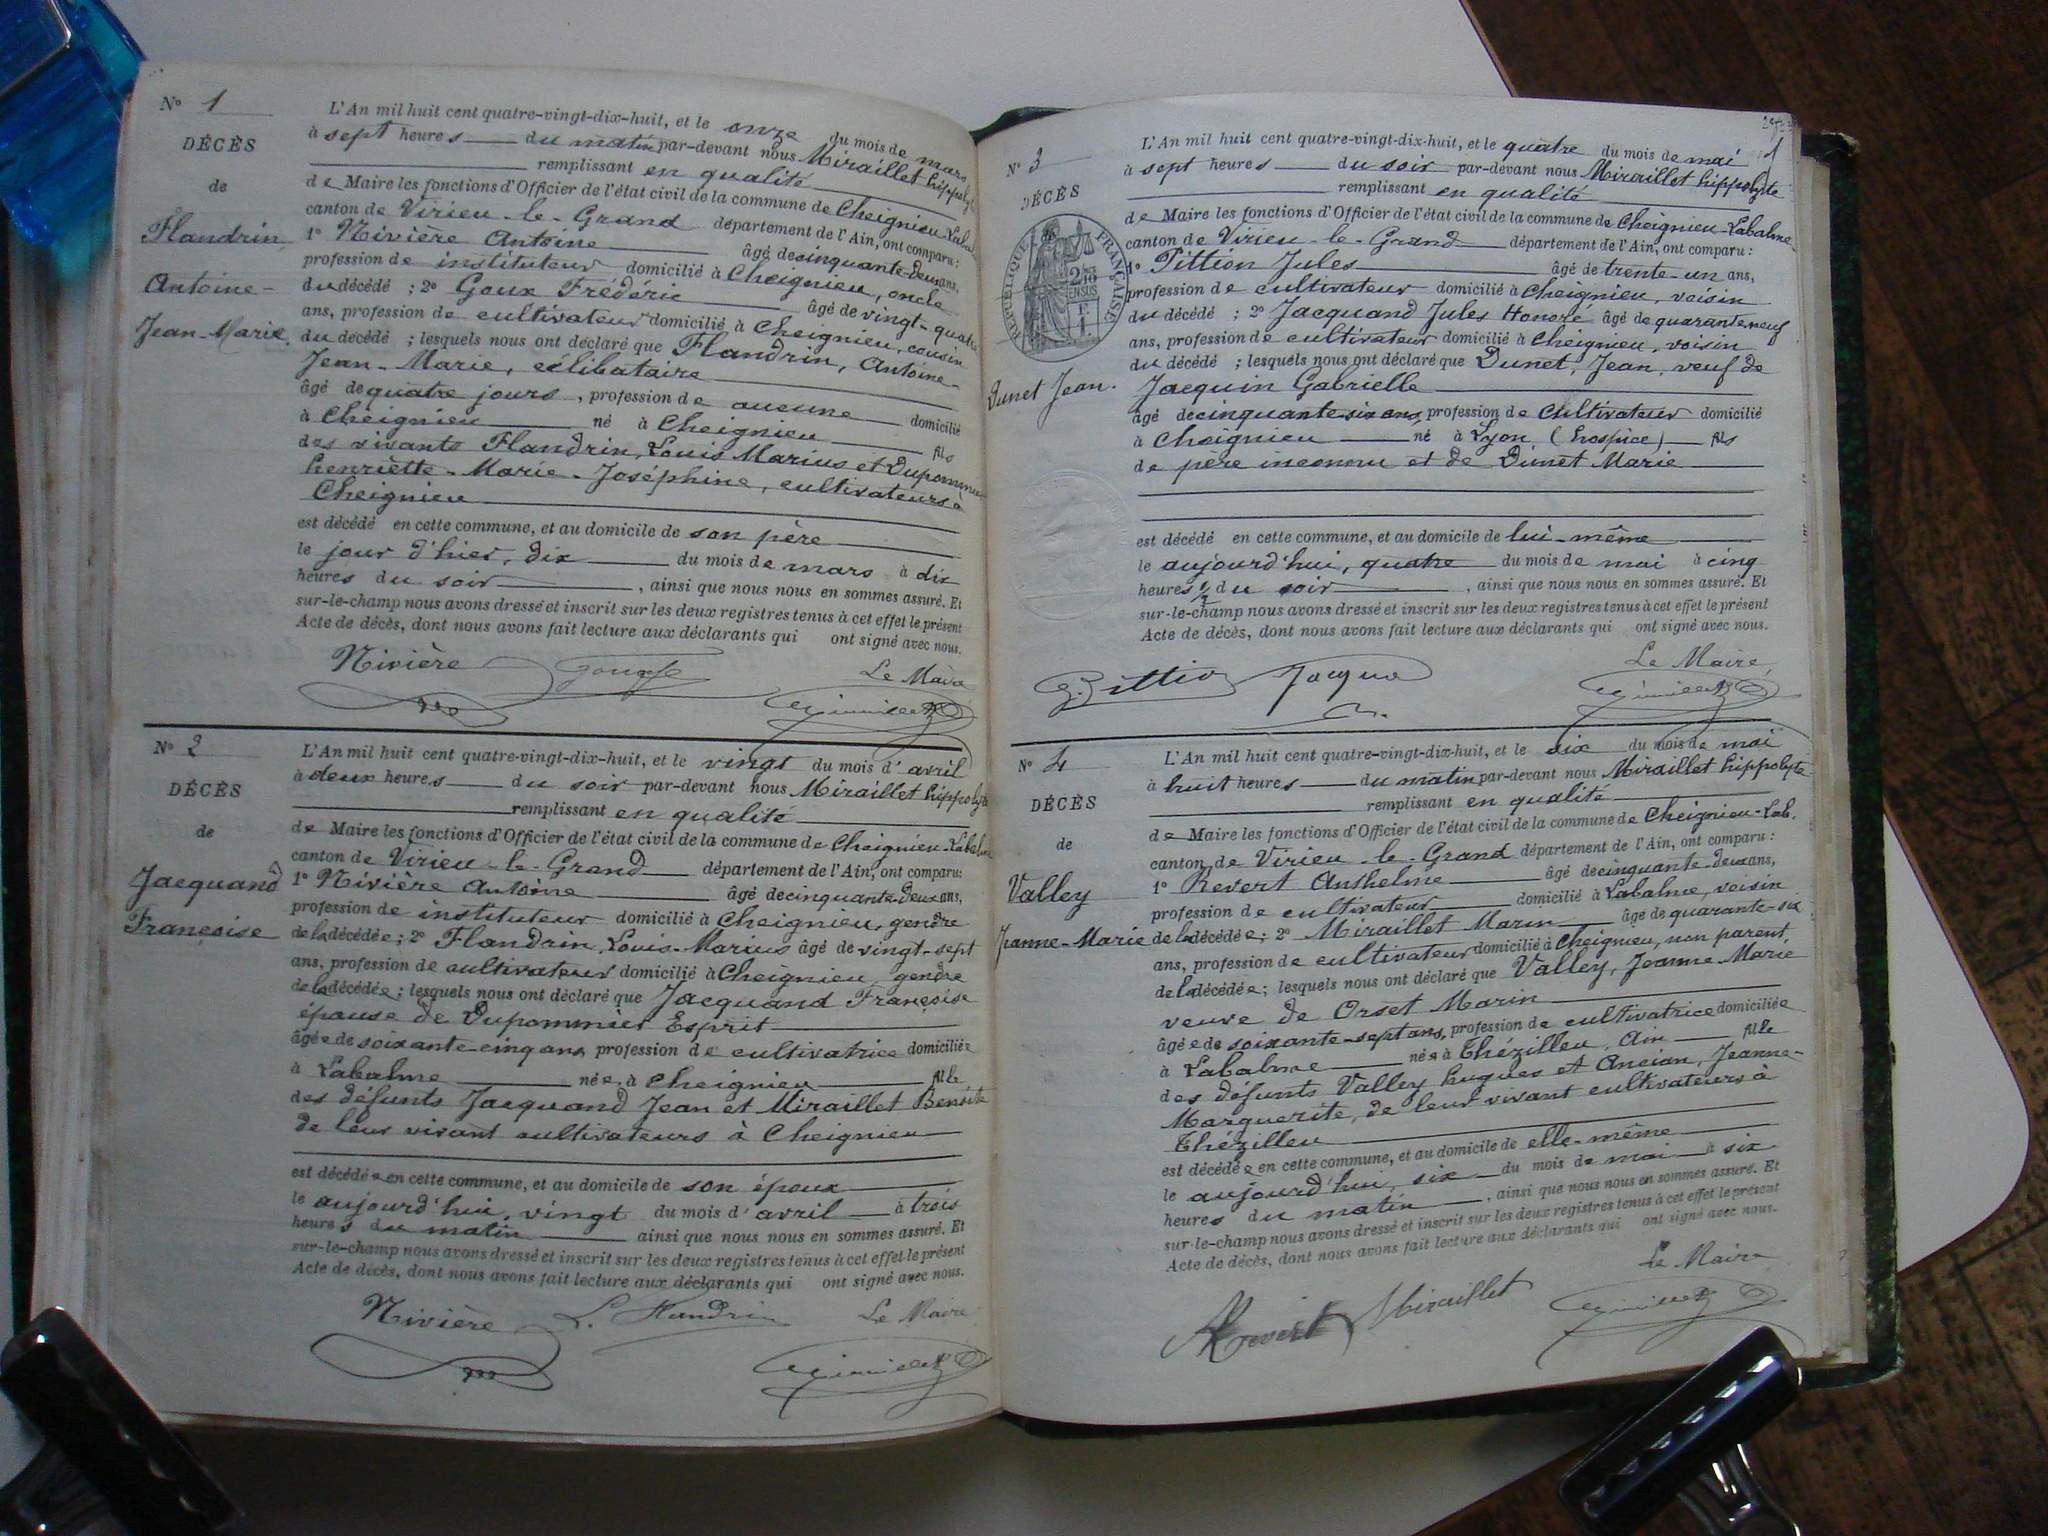 N° 1
DÉCÈS
de
Flandrin
Antoine-
Jean-Marie.
L'An mil huit cent quatre-vingt-dix-huit, et le onze du mois de mars
à sept heures du matin par-devant nous Miraillet hippolyte
remplissant en qualité
de Maire les fonctions d'Officier de l'état civil de la commune de Cheignieu-Labalme
canton de Virieu-le-Grand département de l'Ain, ont comparu:
1° Nivière Antoine âgé de cinquante-deux ans,
profession de instituteur domicilié à Cheignieu, oncle
du décédé ; 2° Goux Frédéric âgé de vingt-quatre
ans, profession de cultivateur domicilié à Cheignieu, cousin
du décédé ; lesquels nous ont déclaré que Flandrin, Antoine-
Jean-Marie, célibataire
âgé de quatre jours, profession de aucune domicilié
à Cheignieu né à Cheignieu fils
des vivants Flandrin, Louis Marius et Dupommier
henriette-Marie-Joséphine, cultivateurs à
Cheignieu
est décédé en cette commune, et au domicile de son père
le jour d'hier, dix du mois de mars à dix
heures du soir, ainsi que nous nous en sommes assuré. Et
sur-le-champ nous avons dressé et inscrit sur les deux registres tenus à cet effet le présent
Acte de décès, dont nous avons fait lecture aux déclarants qui ont signé avec nous.
Le Maire
Nivière
N° 2
DÉCÈS
de
Jacquand
Françoise
L'An mil huit cent quatre-vingt-dix-huit, et le vingt du mois d'avril
à deux heures du soir par-devant nous Miraillet hippolyte
remplissant en qualité
de Maire les fonctions d'Officier de l'état civil de la commune de Cheignieu-Labalme
canton de Virieu-le-Grand département de l'Ain, ont comparu:
1° Nivière Antoine âgé de cinquante-deux ans,
profession de instituteur domicilié à Cheignieu, gendre
de la décédée; 2° Flandrin, Louis-Marius âgé de vingt-sept
ans, profession de cultivateur domicilié à Cheignieu, gendre
de la décédée; lesquels nous ont déclaré que Jacquand Françoise
épouse de Dupommier Esprit
âgée de soixante-cinq ans, profession de cultivatrice domiciliée
à Labalme née à Cheignieu fille
des défunts Jacquand Jean et Miraillet Benoite
de leur vivant cultivateurs à Cheignieu
est décédée en cette commune, et au domicile de son époux
le aujourd'hui, vingt du mois d'avril à trois
heures du matin ainsi que nous nous en sommes assuré. Et
sur-le-champ nous avons dressé et inscrit sur les deux registres tenus à cet effet le présent
Acte de décès, dont nous avons fait lecture aux déclarants qui ont signé avec nous.
Nivière L. Flandrin Le Maire
N° 3
DÉCÈS
RÉPUBLIQUE FRANÇAISE
Dunet Jean.
L'An mil huit cent quatre-vingt-dix-huit, et le quatre du mois de mai
à sept heures du soir par-devant nous Miraillet hippolyte
remplissant en qualité
de Maire les fonctions d'Officier de l'état civil de la commune de Cheignieu-Labalme-
canton de Virieu-le-Grand département de l'Ain, ont comparu:
1° Pittion Jules âgé de trente-un ans,
profession de cultivateur domicilié à Cheignieu, voisin
du décédé ; 2° Jacquand Jules Honoré âgé de quarante neuf
ans, profession de cultivateur domicilié à Cheignieu, voisin
du décédé ; lesquels nous ont déclaré que Dunet, Jean, veuf de
Jacquin Gabrielle
âgé de cinquante-six ans, profession de cultivateur domicilié
à Cheignieu né à Lyon (hospice) fils
de père inconnu et de Dunet Marie
est décédé en cette commune, et au domicile de lui-même
le aujourd'hui, quatre du mois de mai à cinq
heures ½ du soir, ainsi que nous nous en sommes assuré. Et
sur-le-champ nous avons dressé et inscrit sur les deux registres tenus à cet effet le présent
Acte de décès, dont nous avons fait lecture aux déclarants qui ont signé avec nous.
Le Maire,
J. Pittion Jacquand
N° 4
DÉCÈS
de
Valley
Jeanne-Marie
L'An mil huit cent quatre-vingt-dix-huit, et le dix du mois de mai
à huit heures du matin par-devant nous Miraillet hippolyte
remplissant en qualité
de Maire les fonctions d'Officier de l'état civil de la commune de Cheignieu-Lab.
canton de Virieu-le-Grand département de l'Ain, ont comparu:
1° Revert Anthelme âgé de cinquante-deux ans,
profession de cultivateur domicilié à Labalme, voisin
de la décédée; 2° Miraillet Marin âgé de quarante-six
ans, profession de cultivateur domicilié à Cheignieu, non parent
de la décédée; lesquels nous ont déclaré que Valley, Jeanne-Marie
veuve de Orset Marin
âgée de soixante-sept ans, profession de cultivatrice domiciliée
à Labalme née à Thézillieu, Ain fille
des défunts Valley hugues et Ancian, Jeanne-
Marguerite, de leur vivant cultivateurs à
Thézillieu
est décédée en cette commune, et au domicile de elle-même
le aujourd'hui, six du mois de mai à six
heures du matin, ainsi que nous nous en sommes assuré. Et
sur-le-champ nous avons dressé et inscrit sur les deux registres tenus à cet effet le présent
Acte de décès, dont nous avons fait lecture aux déclarants qui ont signé avec nous.
Le Maire
Revert Miraillet